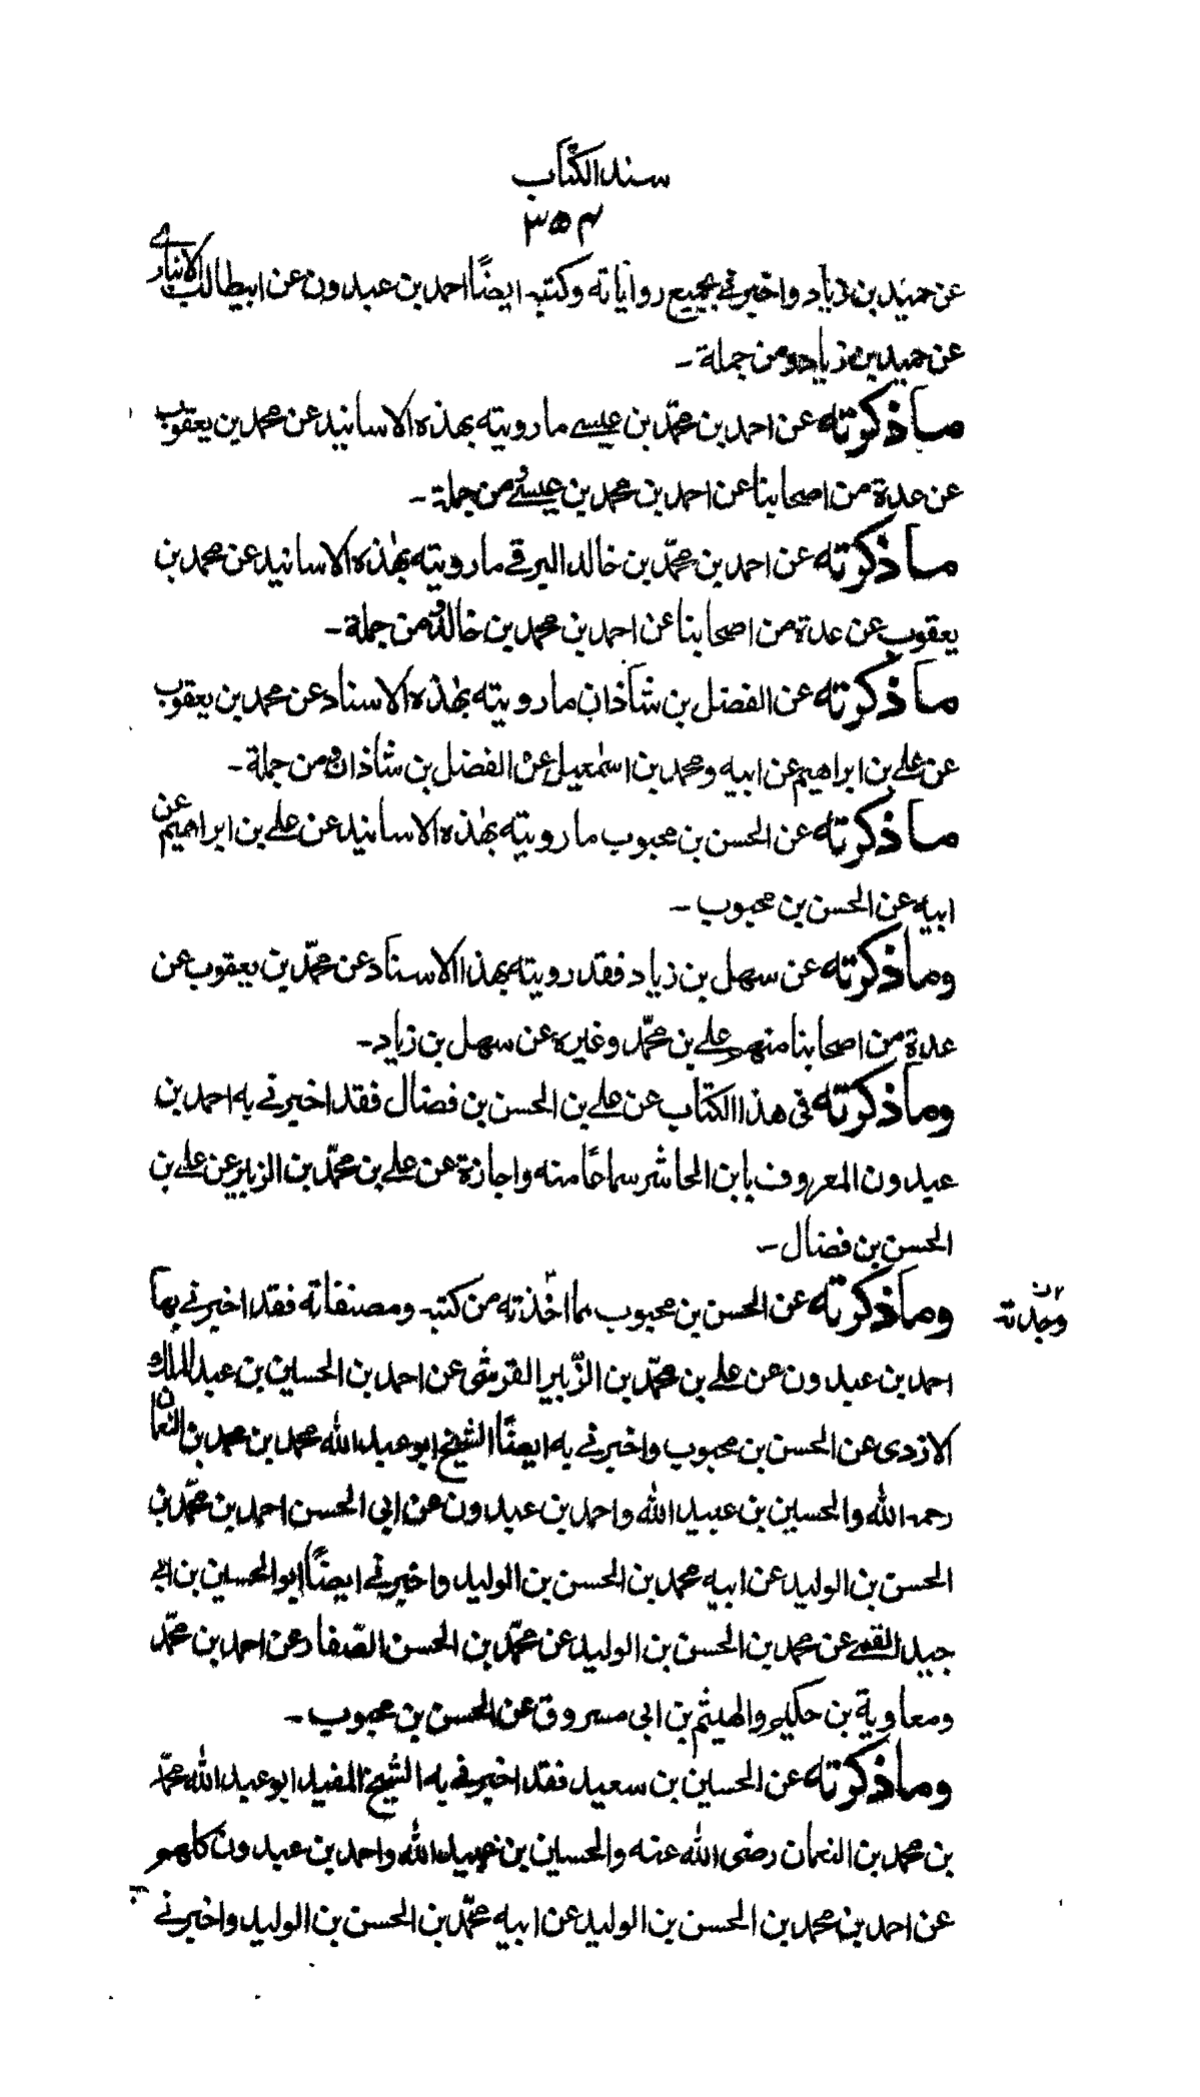 سند الكتاب
٣٥٤
عن حميد بن زياد واخبرني بجميع رواياته وكتبه ايضًا احمد بن عبدون عن ابيطالب الانباري
عن حميد بن زياد ومن جملة -
ما ذكرته عن احمد بن محمّد بن عيسى ما رويته بهذه الاسانيد عن محمد بن يعقوب
عن عدة من اصحابنا عن احمد بن محمد بن عيسى ومن جملة -
ما ذكرته عن احمد بن محمّد بن خالد البرقي ما رويته بهٰذه الاسانيد عن محمد بن
يعقوب عن عدة من اصحابنا عن احمد بن محمد بن خالد ومن جملة -
ما ذكرته عن الفضل بن شاذان ما رويته بهٰذه الاسناد عن محمد بن يعقوب
عن علي بن ابراهيم عن ابيه ومحمد بن اسمٰعيل عن الفضل بن شاذان ومن جملة -
ما ذكرته عن الحسن بن محبوب ما رويته بهٰذه الاسانيد عن علي بن ابراهيم عن
ابيه عن الحسن بن محبوب -
وما ذكرته عن سهل بن زياد فقد رويته بهذا الاسناد عن محمّد بن يعقوب عن
عدة من اصحابنا منهم علي بن محمّد وغيره عن سهل بن زياد -
وما ذكرته في هذا الكتاب عن علي بن الحسن بن فضال فقد اخبرني به احمد بن
عبدون المعروف بابن الحاشر سماعًا منه واجازة عن علي بن محمّد بن الزبير عن علي بن
الحسن بن فضال -
وما ذكرته عن الحسن بن محبوب مما اخذته من كتبه ومصنفاته فقد اخبرني بها
وجدته
احمد بن عبدون عن علي بن محمّد بن الزّبير القرشي عن احمد بن الحسين بن عبد الملك
الازدي عن الحسن بن محبوب واخبرني به ايضًا الشيخ ابو عبد الله محمد بن محمد بن النعمان
رحمه الله والحسين بن عبيد الله واحمد بن عبدون عن ابي الحسن احمد بن محمّد بن
الحسن بن الوليد عن ابيه محمد بن الحسن بن الوليد واخبرني ايضًا ابو الحسين بن ابي
جيد القمي عن محمد بن الحسن بن الوليد عن محمّد بن الحسن الصّفار عن احمد بن محمّد
ومعاوية بن حكيم والهيثم بن ابي مسروق عن الحسن بن محبوب -
وما ذكرته عن الحسين بن سعيد فقد اخبرني به الشيخ المفيد ابو عبد الله محمّد
بن محمد بن النعمان رضي الله عنه والحسين بن عبيد الله واحمد بن عبدون كلهم
عن احمد بن محمد بن الحسن بن الوليد عن ابيه محمّد بن الحسن بن الوليد واخبرني